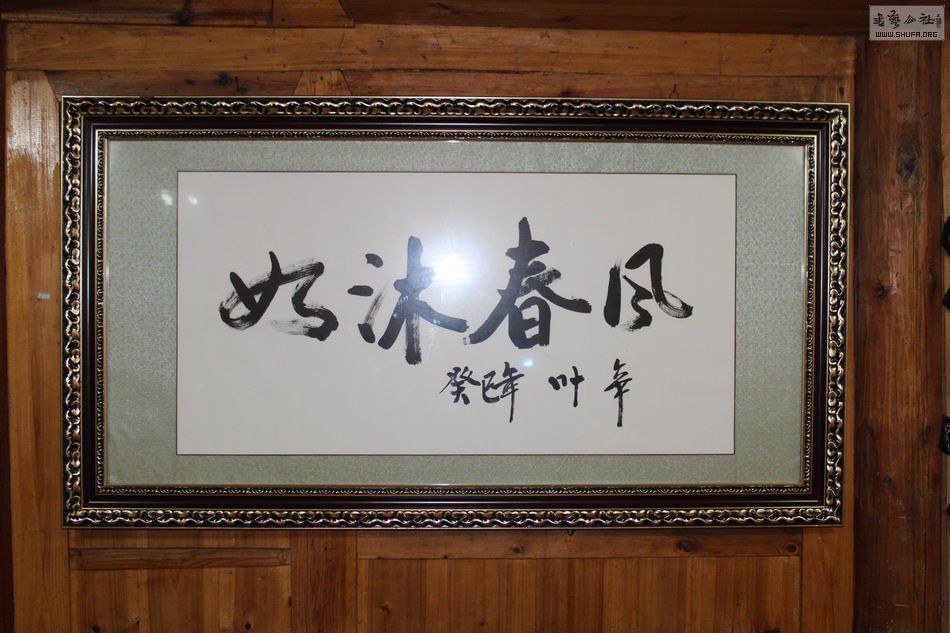 书艺公社
WWW.SHUFA.ORG
如沐春风
癸巳年 叶辛